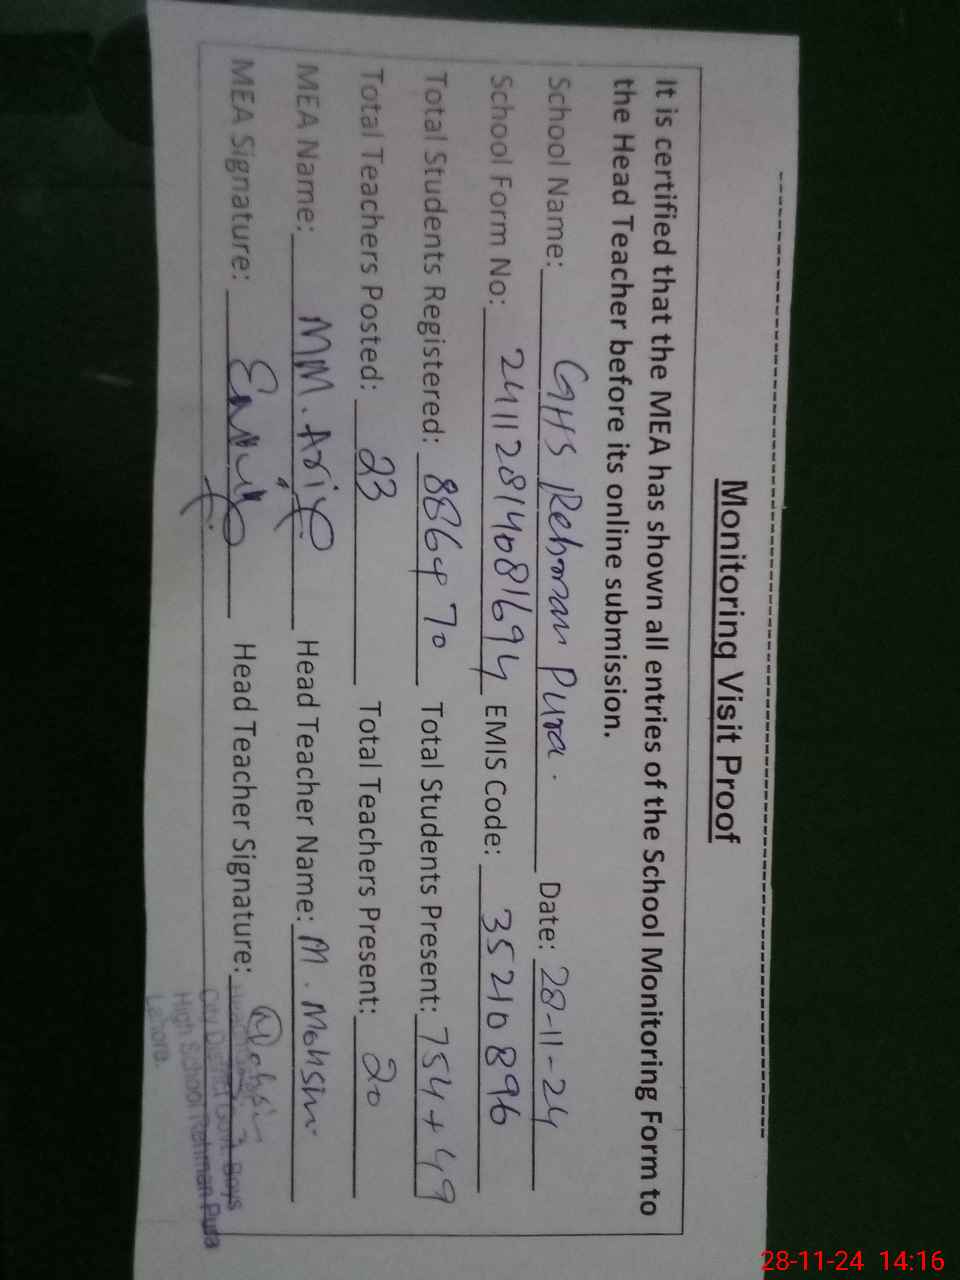 Monitoring Visit Proof
It is certified that the MEA has shown all entries of the School Monitoring Form to
the Head Teacher before its online submission.
School Name: GHS Rehman Pura. Date: 28-11-24
School Form No: 24112814081694 EMIS Code: 35210896
Total Students Registered: 886+70 Total Students Present: 754+49
Total Teachers Posted: 23 Total Teachers Present: 20
MEA Name: M.M. Arif Head Teacher Name: M. Mohsin
MEA Signature: Head Teacher Signature: Mohsin
City District Govt. Boys
High School Rehman Pura
Lahore.
28-11-24 14:16